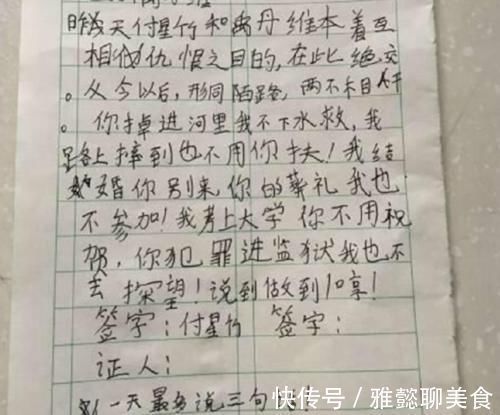 昨天付星竹和禹丹维本着互
相仇恨之目的,在此绝交
。从今以后,形同陌路,两不相干
。你掉进河里我不下水救,我
路上摔到也不用你扶!我结
婚你别来,你的葬礼我也
不参加!我考上大学你不用祝
贺,你犯罪进监狱我也不
去探望!说到做到!哼!
签字:付星竹 签字:
证人:
一天最多说三句
快传号 / 雅懿聊美食